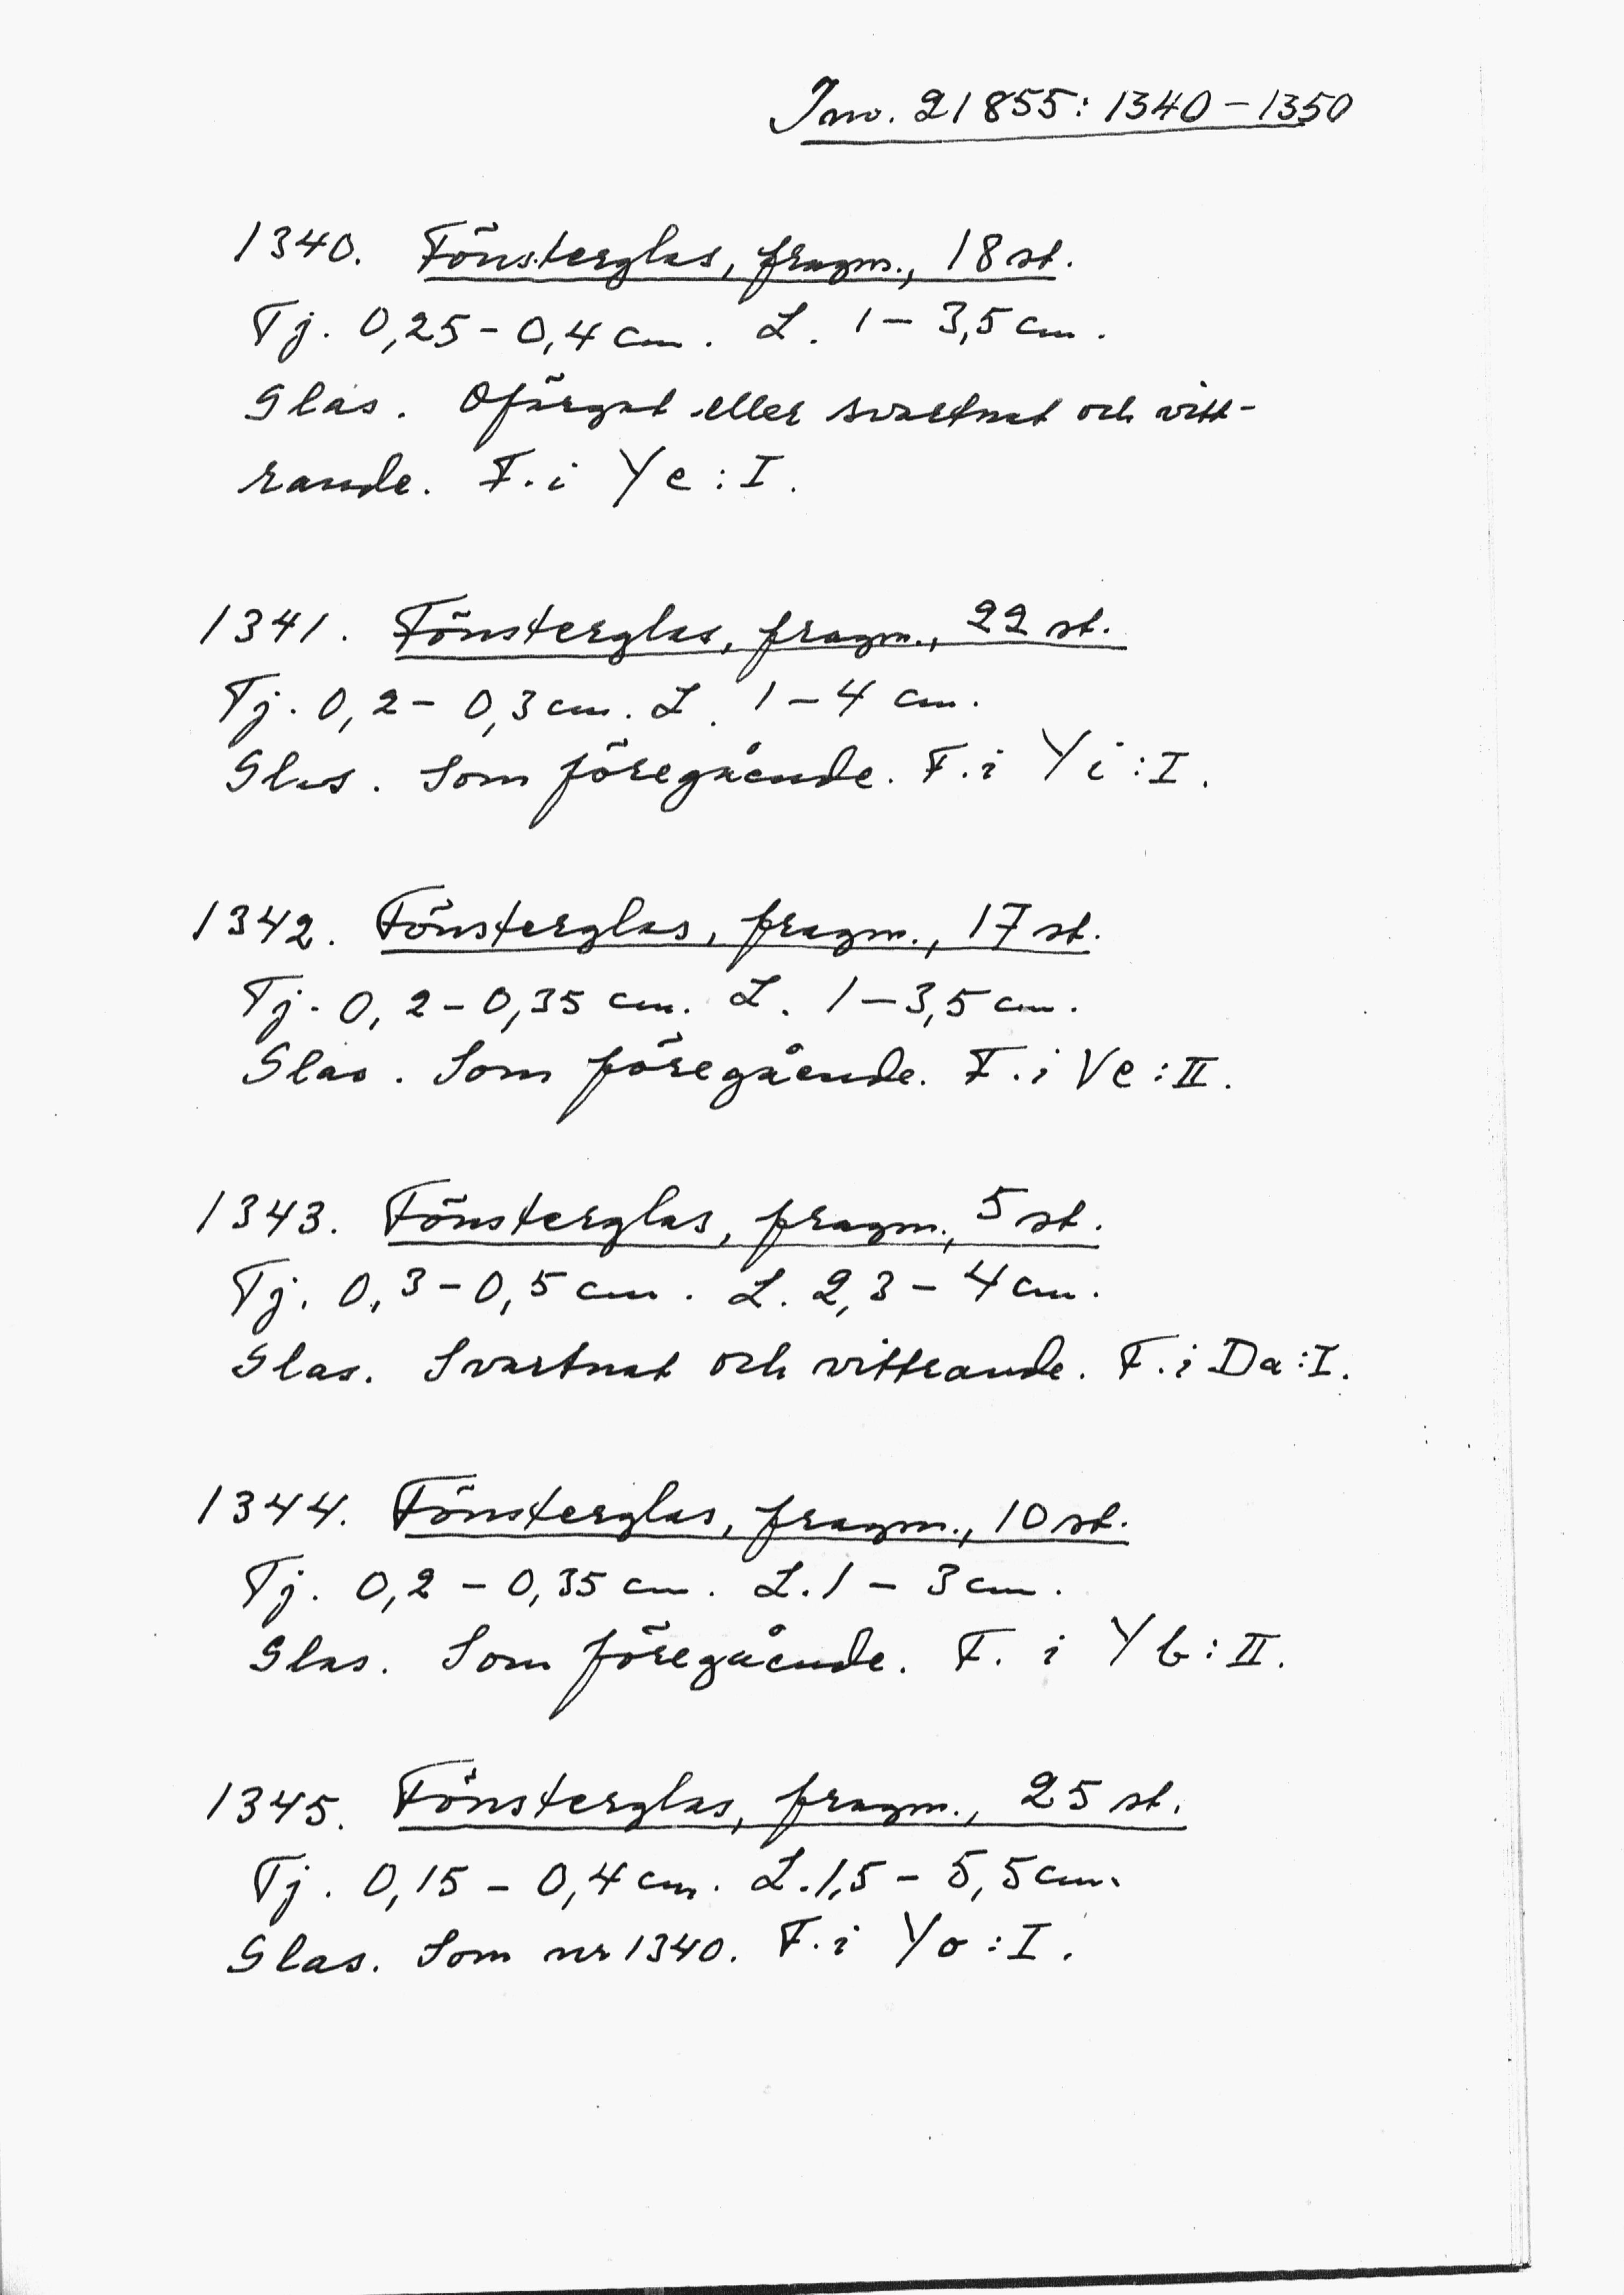 Inv. 21855:1340-1350
1340. Fönsterglas, fragm., 18 st.
Tj. 0,25-0,4 cm. L. 1-3,5 cm.
Glas. Ofärgat eller svartnat och vitt-
rande. F. i Ye:I.
1341. Fönsterglas, fragm., 22 st.
Tj. 0,2-0,3 cm. L. 1-4 cm.
Glas. Som föregående. F. i Yi:I.
1342. Fönsterglas, fragm., 17 st.
Tj. 0,2-0,35 cm. L. 1-3,5 cm.
Glas. Som föregående. F. i Ve:II.
1343. Fönsterglas, fragm., 5 st.
Tj. 0,3-0,5 cm. L. 2,3-4 cm.
Glas. Svartnat och vittrande. F. i Da:I.
1344. Fönsterglas, fragm., 10 st.
Tj. 0,2-0,35 cm. L. 1-3 cm.
Glas. Som föregående. F. i Yb:II.
1345. Fönsterglas, fragm., 25 st.
Tj. 0,15-0,4 cm. L. 1,5-5,5 cm.
Glas. Som nr 1340. F. i Yo:I.